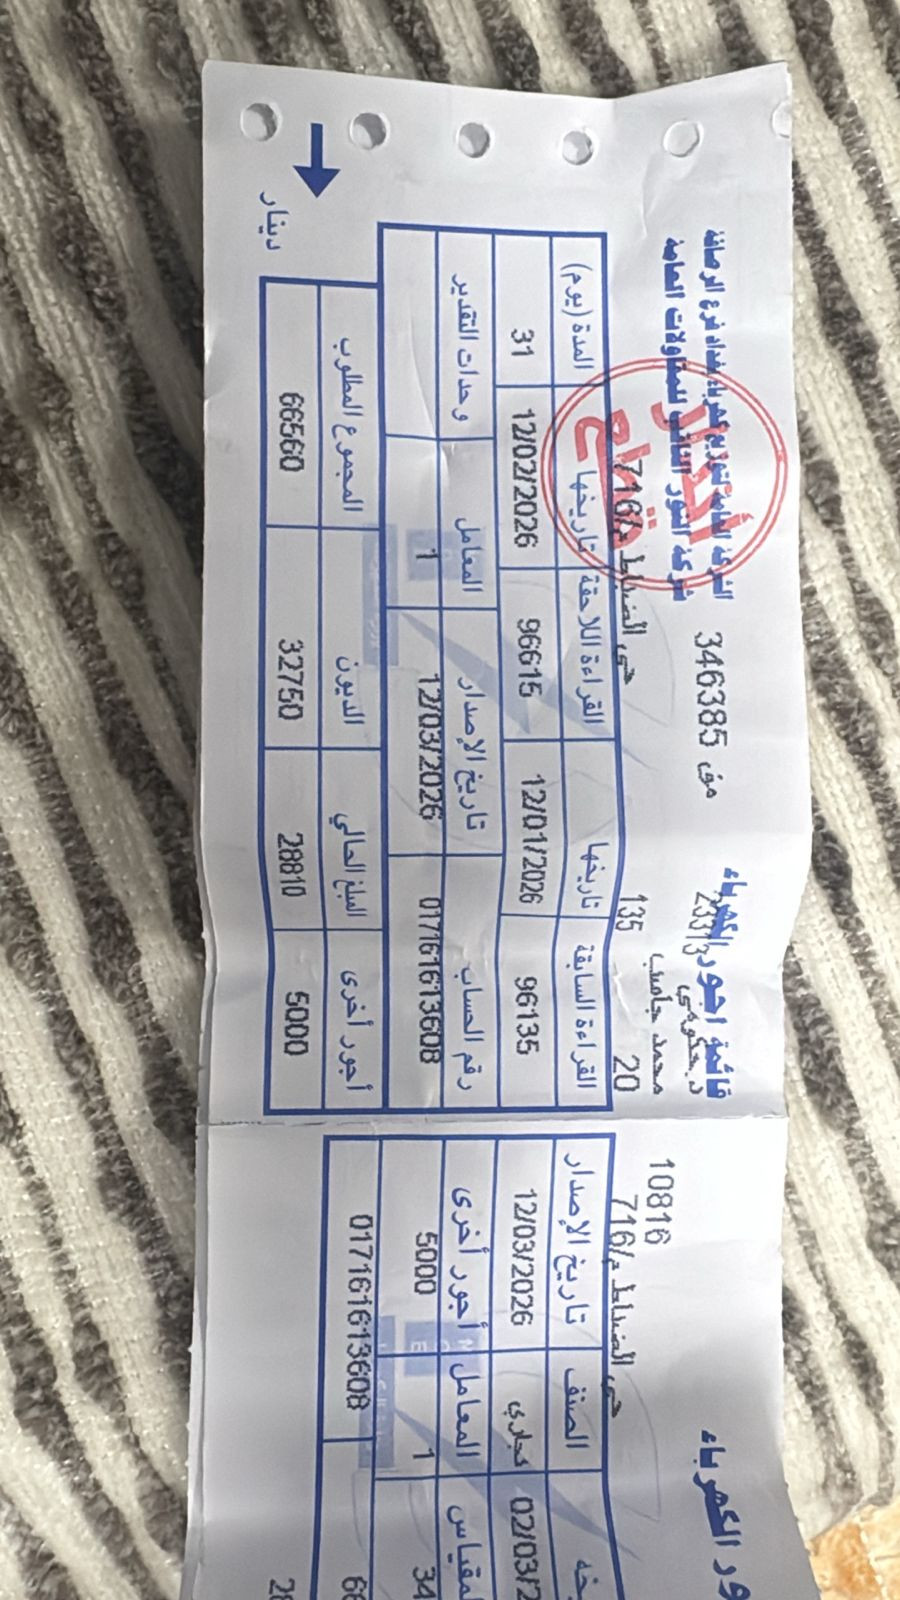 الشركة العامة لتوزيع كهرباء بغداد فرع الرصافة
شركة النور الثاقب للمقاولات العامة
انذار
قطع
346385 مق
قائمة اجور الكهرباء
23313
د.حكومي
محمد جاسب
حي الضباط م/716 135 20
القراءة السابقة تاريخها القراءة اللاحقة تاريخها المدة (يوم)
96135 12/01/2026 96615 12/02/2026 31
رقم الحساب تاريخ الإصدار المعامل وحدات التقدير
017161613608 12/03/2026 1
أجور أخرى المبلغ الحالي الديون المجموع المطلوب
5000 28810 32750 66560
دينار
ور الكهرباء
10816
حي الضباط م/716
الصنف تاريخ الإصدار
تجاري 12/03/2026
02/03/2
المعامل أجور أخرى
34 1 5000
017161613608
66
28